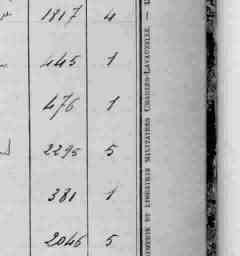 1817 4
445 1
476 1
2295 5
381 1
2046 5
IMERIE ET LIBRAIRIE MILITAIRES CHARLES-LAVAUZELLE. —